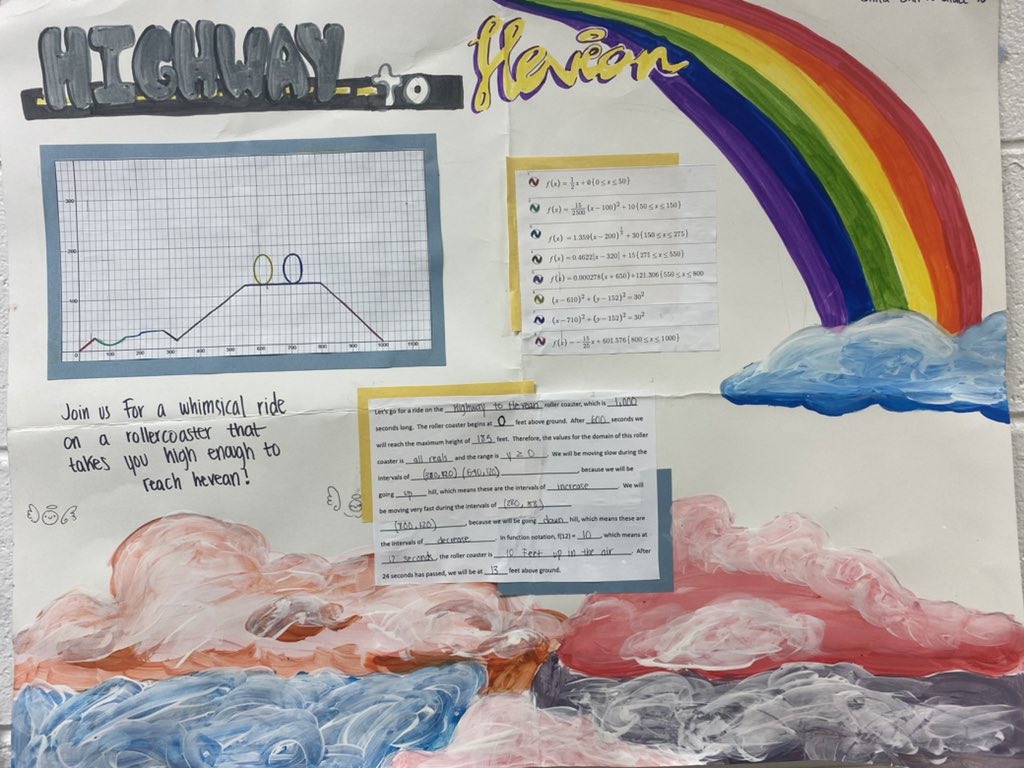 HIGHWAY to Hevean
300
200
100
0 100 200 300 400 500 600 700 800 900 1000 1100
f(x) = 1/2 x + 0 {0 ≤ x ≤ 50}
f(x) = 15/2500 (x − 100)² + 10 {50 ≤ x ≤ 150}
f(x) = 1.359(x − 200)^(1/3) + 30 {150 ≤ x ≤ 275}
f(x) = 0.4622|x − 320| + 15 {275 ≤ x ≤ 550}
f(x) = 0.000278(x + 650) + 121.306 {550 ≤ x ≤ 800
(x − 610)² + (y − 152)² = 30²
(x − 710)² + (y − 152)² = 30²
601.576 {800 ≤ x ≤ 1000}
Join us For a whimsical ride
on a rollercoaster that
takes you high enough to
reach hevean!
Let's go for a ride on the Highway to Hevean roller coaster, which is 1,000
seconds long. The roller coaster begins at 0 feet above ground. After 600 seconds we
will reach the maximum height of 135 feet. Therefore, the values for the domain of this roller
coaster is all reals and the range is y ≥ 0. We will be moving slow during the
intervals of because we will be
going up hill, which means these are the intervals of increase. We will
be moving very fast during the intervals of
(700, 120), because we will be going down hill, which means these are
the intervals of decrease. In function notation, f(12) = 10 which means at
12 seconds, the roller coaster is 10 feet up in the air. After
24 seconds has passed, we will be at 13 feet above ground.